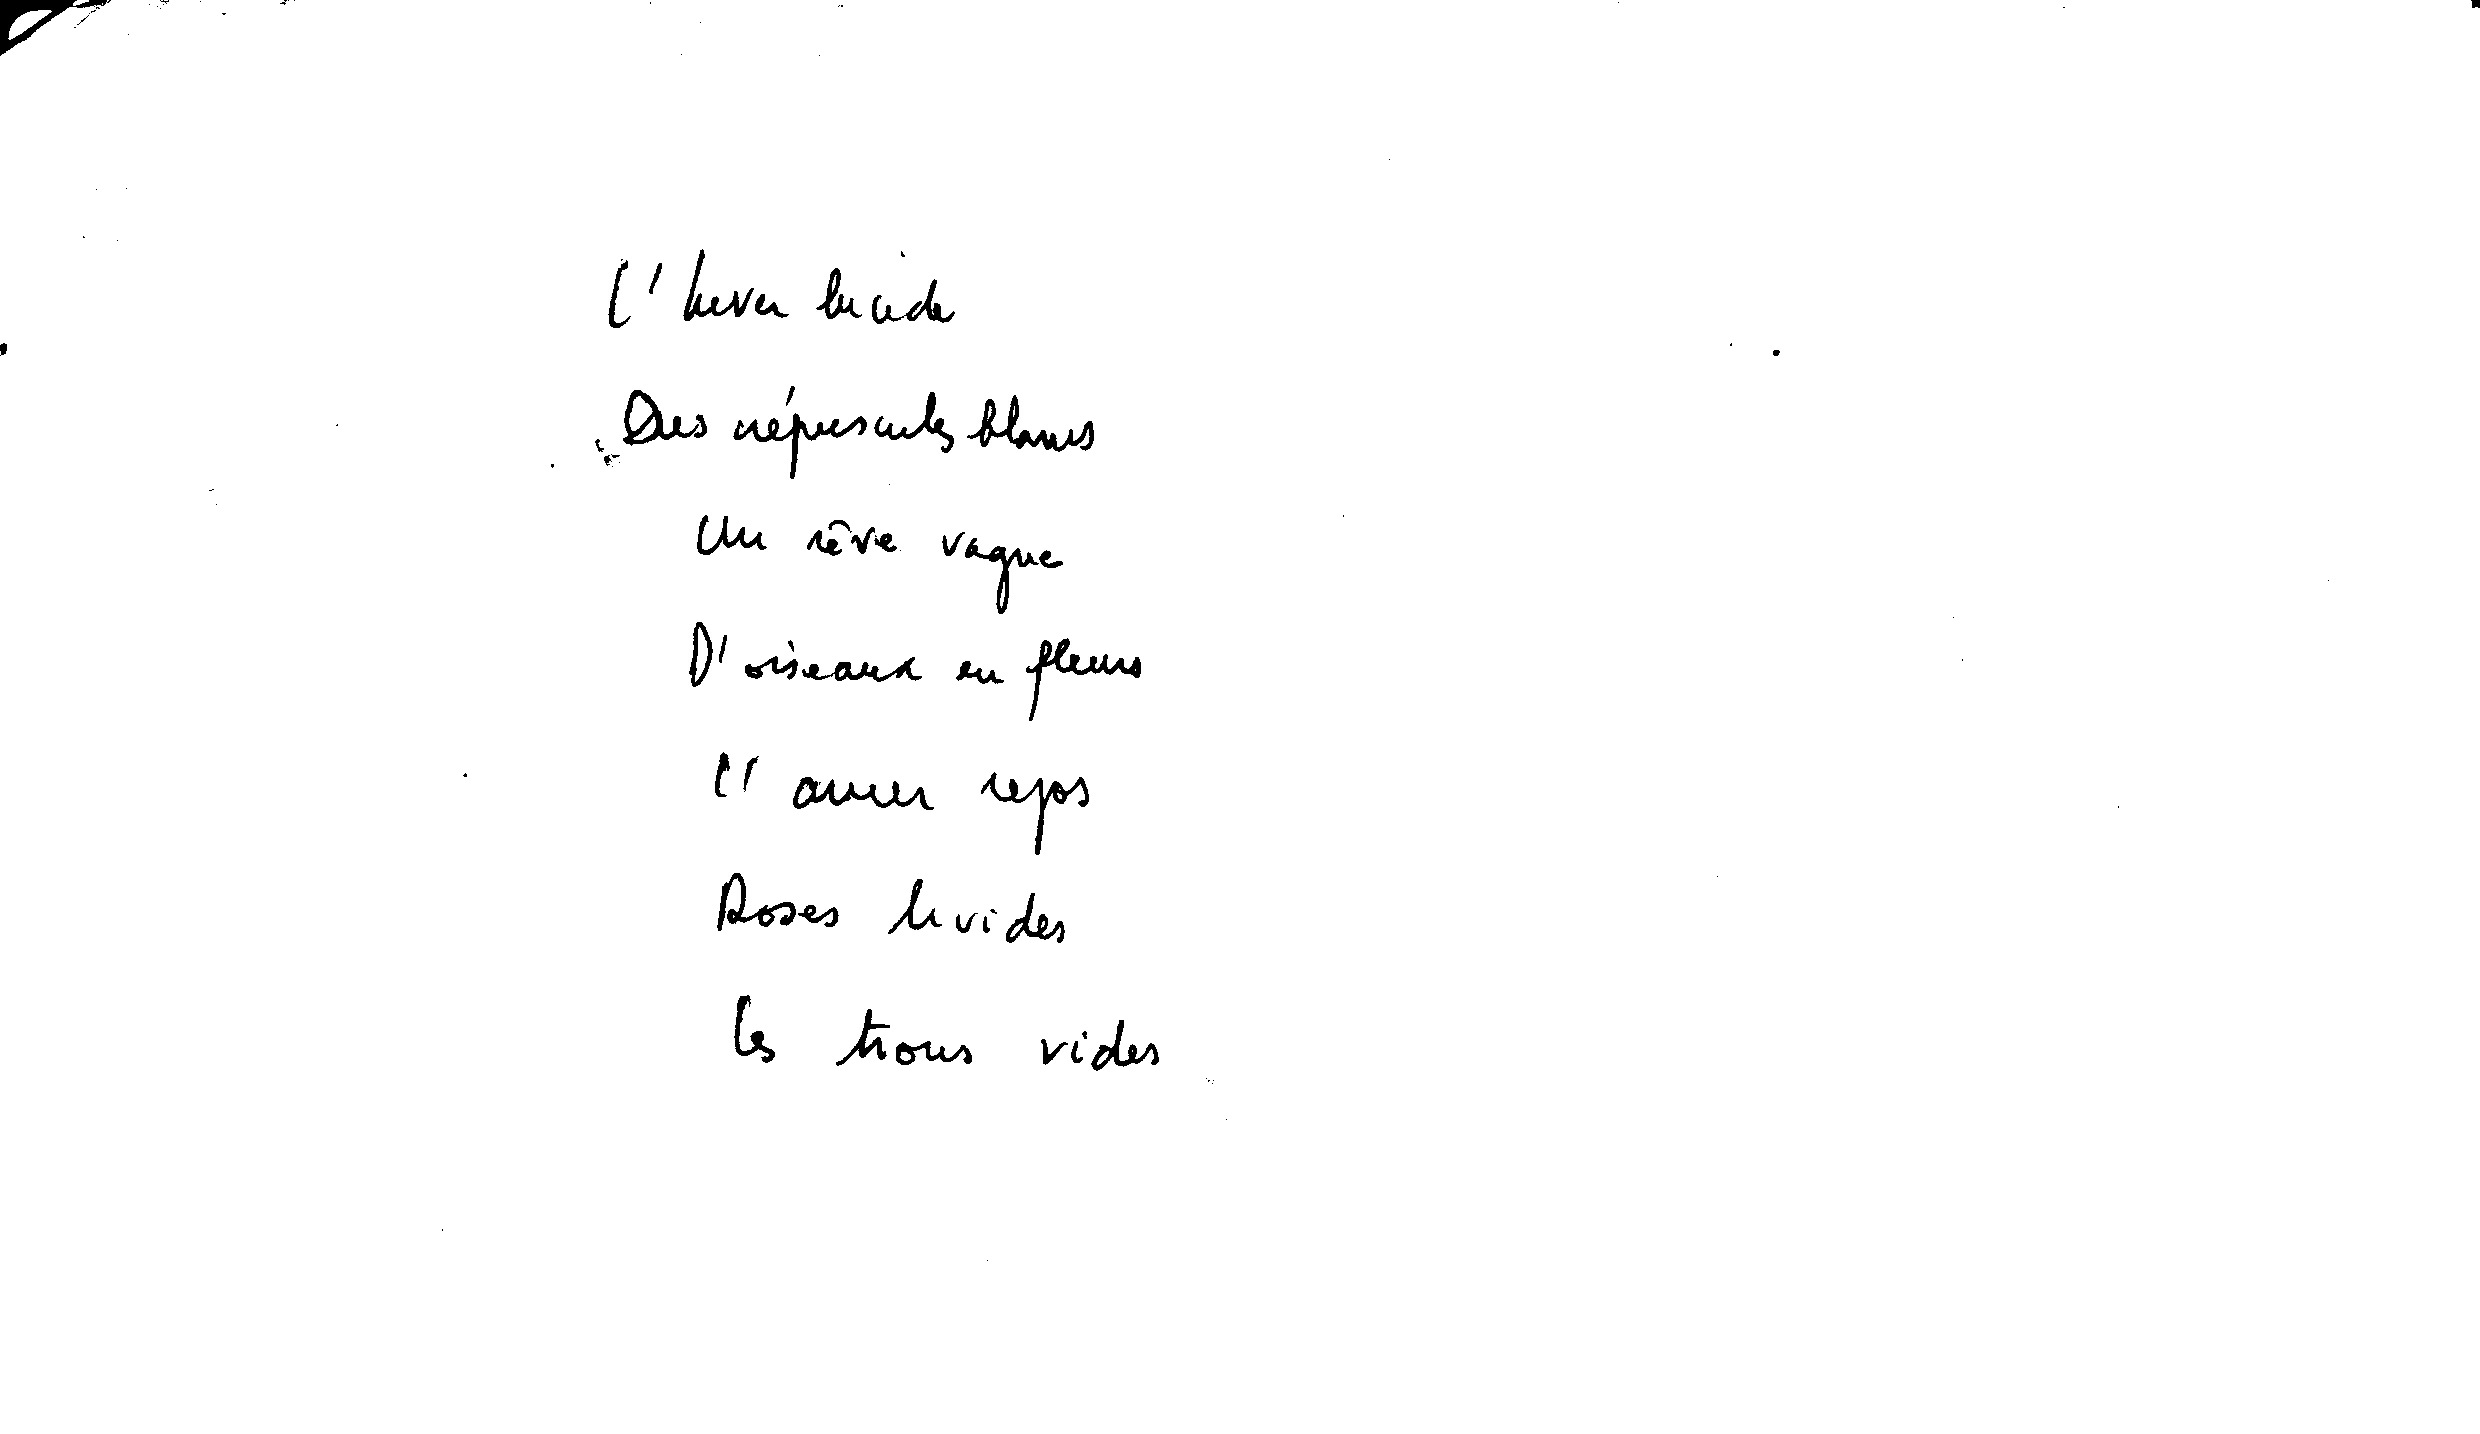 L'hiver lucide
Des crépuscules blancs
Un rêve vague
D'oiseaux en fleurs
L'amer repos
Roses livides
Les trous vides